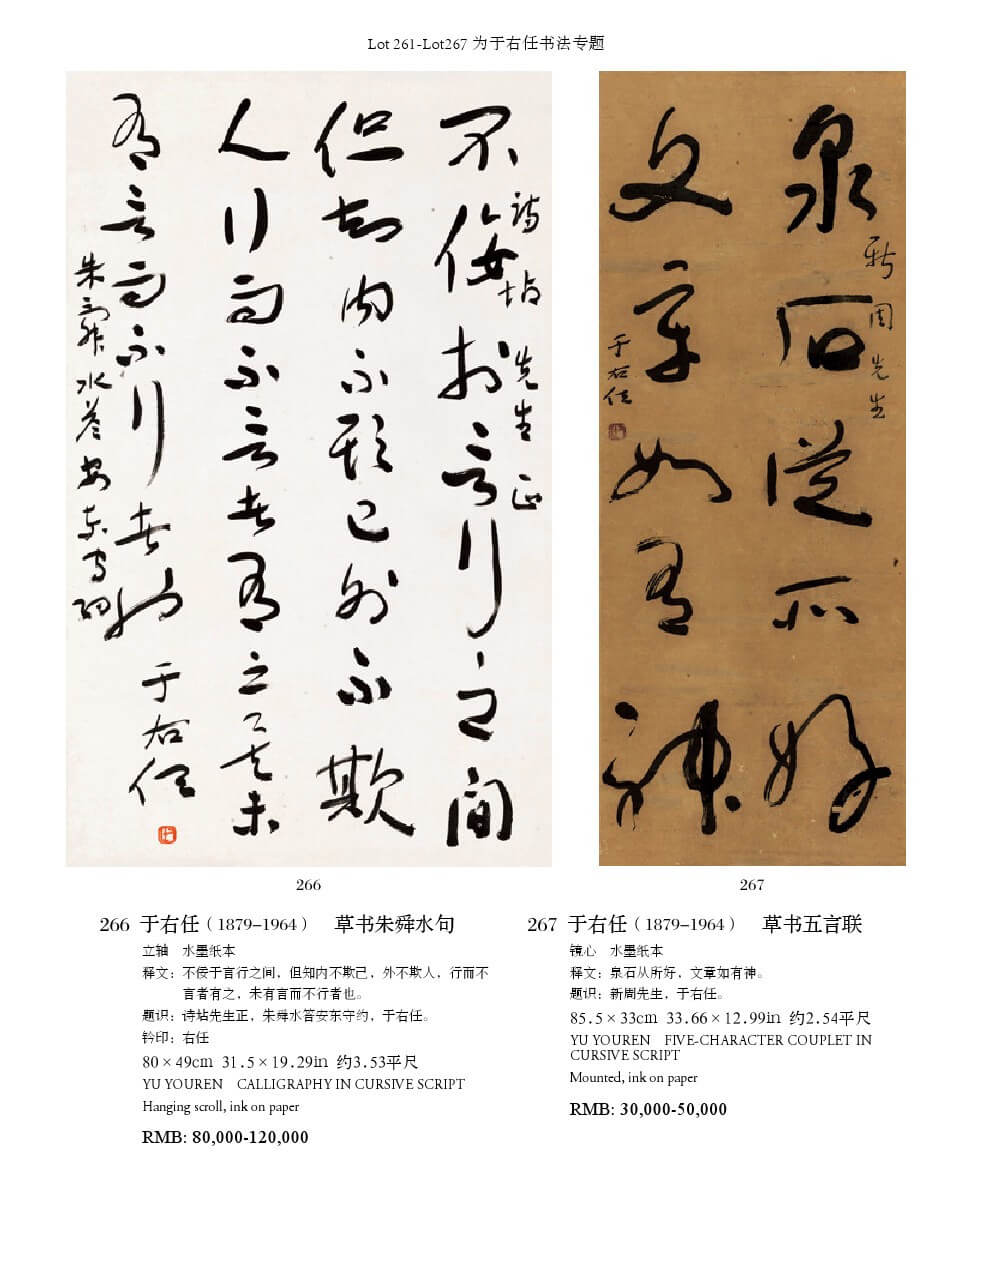 Lot 261-Lot267 为于右任书法专题
不佞於言行之間
詩坫先生正
但知内不欺己外不欺
人行而不言者有之矣未
有言而不行者也
朱舜水答安東守約
于右任
泉石從所好
新周先生
文章如有神
于右任
266
267
266 于右任（1879–1964） 草书朱舜水句
立轴 水墨纸本
释文：不佞于言行之间，但知内不欺己，外不欺人，行而不
言者有之，未有言而不行者也。
题识：诗坫先生正，朱舜水答安东守约，于右任。
钤印：右任
80×49cm 31.5×19.29in 约3.53平尺
YU YOUREN CALLIGRAPHY IN CURSIVE SCRIPT
Hanging scroll, ink on paper
RMB: 80,000-120,000
267 于右任（1879–1964） 草书五言联
镜心 水墨纸本
释文：泉石从所好，文章如有神。
题识：新周先生，于右任。
85.5×33cm 33.66×12.99in 约2.54平尺
YU YOUREN FIVE-CHARACTER COUPLET IN
CURSIVE SCRIPT
Mounted, ink on paper
RMB: 30,000-50,000